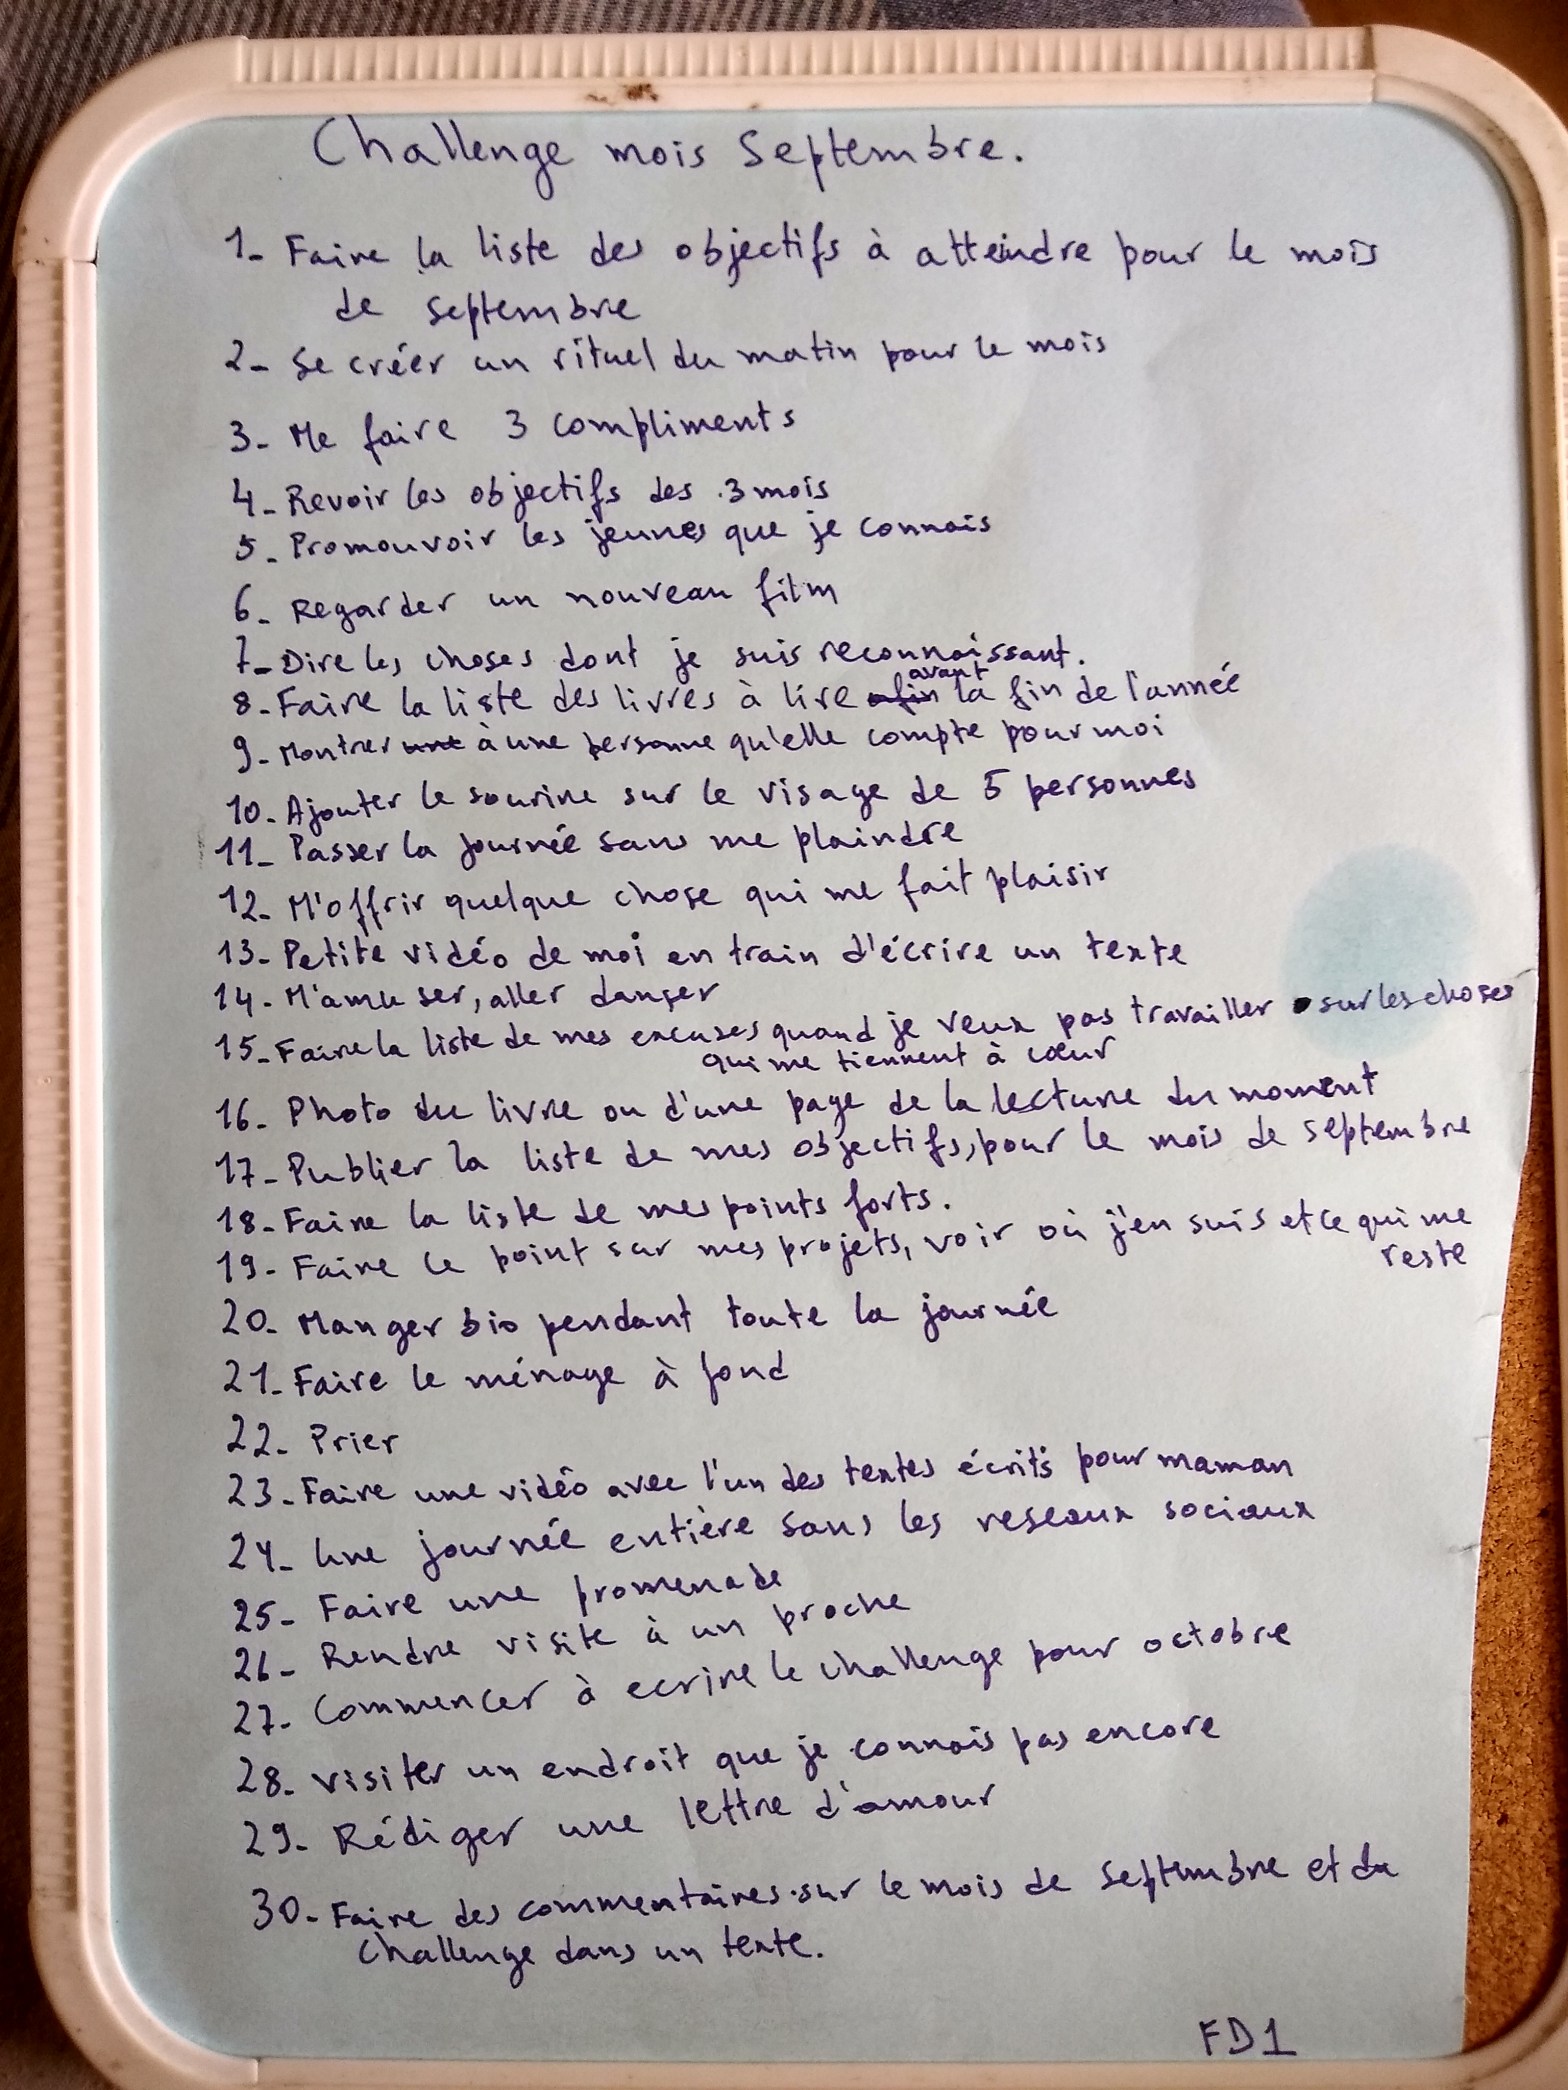 Challenge mois Septembre.
1- Faire la liste des objectifs à atteindre pour le mois
de septembre
2- Se créer un rituel du matin pour le mois
3- Me faire 3 compliments
4- Revoir les objectifs des 3 mois
5- Promouvoir les jeunes que je connais
6- Regarder un nouveau film
7- Dire les choses dont je suis reconnaissant.
8- Faire la liste des livres à lire afin avant la fin de l'année
9- Montrer une à une personne qu'elle compte pour moi
10- Ajouter le sourire sur le visage de 5 personnes
11- Passer la journée sans me plaindre
12- M'offrir quelque chose qui me fait plaisir
13- Petite vidéo de moi en train d'écrire un texte
14- M'amuser, aller danser
15- Faire la liste de mes excuses quand je veux pas travailler sur les choses
qui me tiennent à cœur
16- Photo du livre ou d'une page de la lecture du moment
17- Publier la liste de mes objectifs, pour le mois de septembre
18- Faire la liste de mes points forts.
19- Faire le point sur mes projets, voir où j'en suis et ce qui me
reste
20- Manger bio pendant toute la journée
21- Faire le ménage à fond
22- Prier
23- Faire une vidéo avec l'un des textes écrits pour maman
24- Une journée entière sans les reseaux sociaux
25- Faire une promenade
26- Rendre visite à un proche
27- Commencer à ecrire le challenge pour octobre
28- visiter un endroit que je connais pas encore
29- Rédiger une lettre d'amour
30- Faire des commentaires sur le mois de septembre et du
challenge dans un texte.
FD1